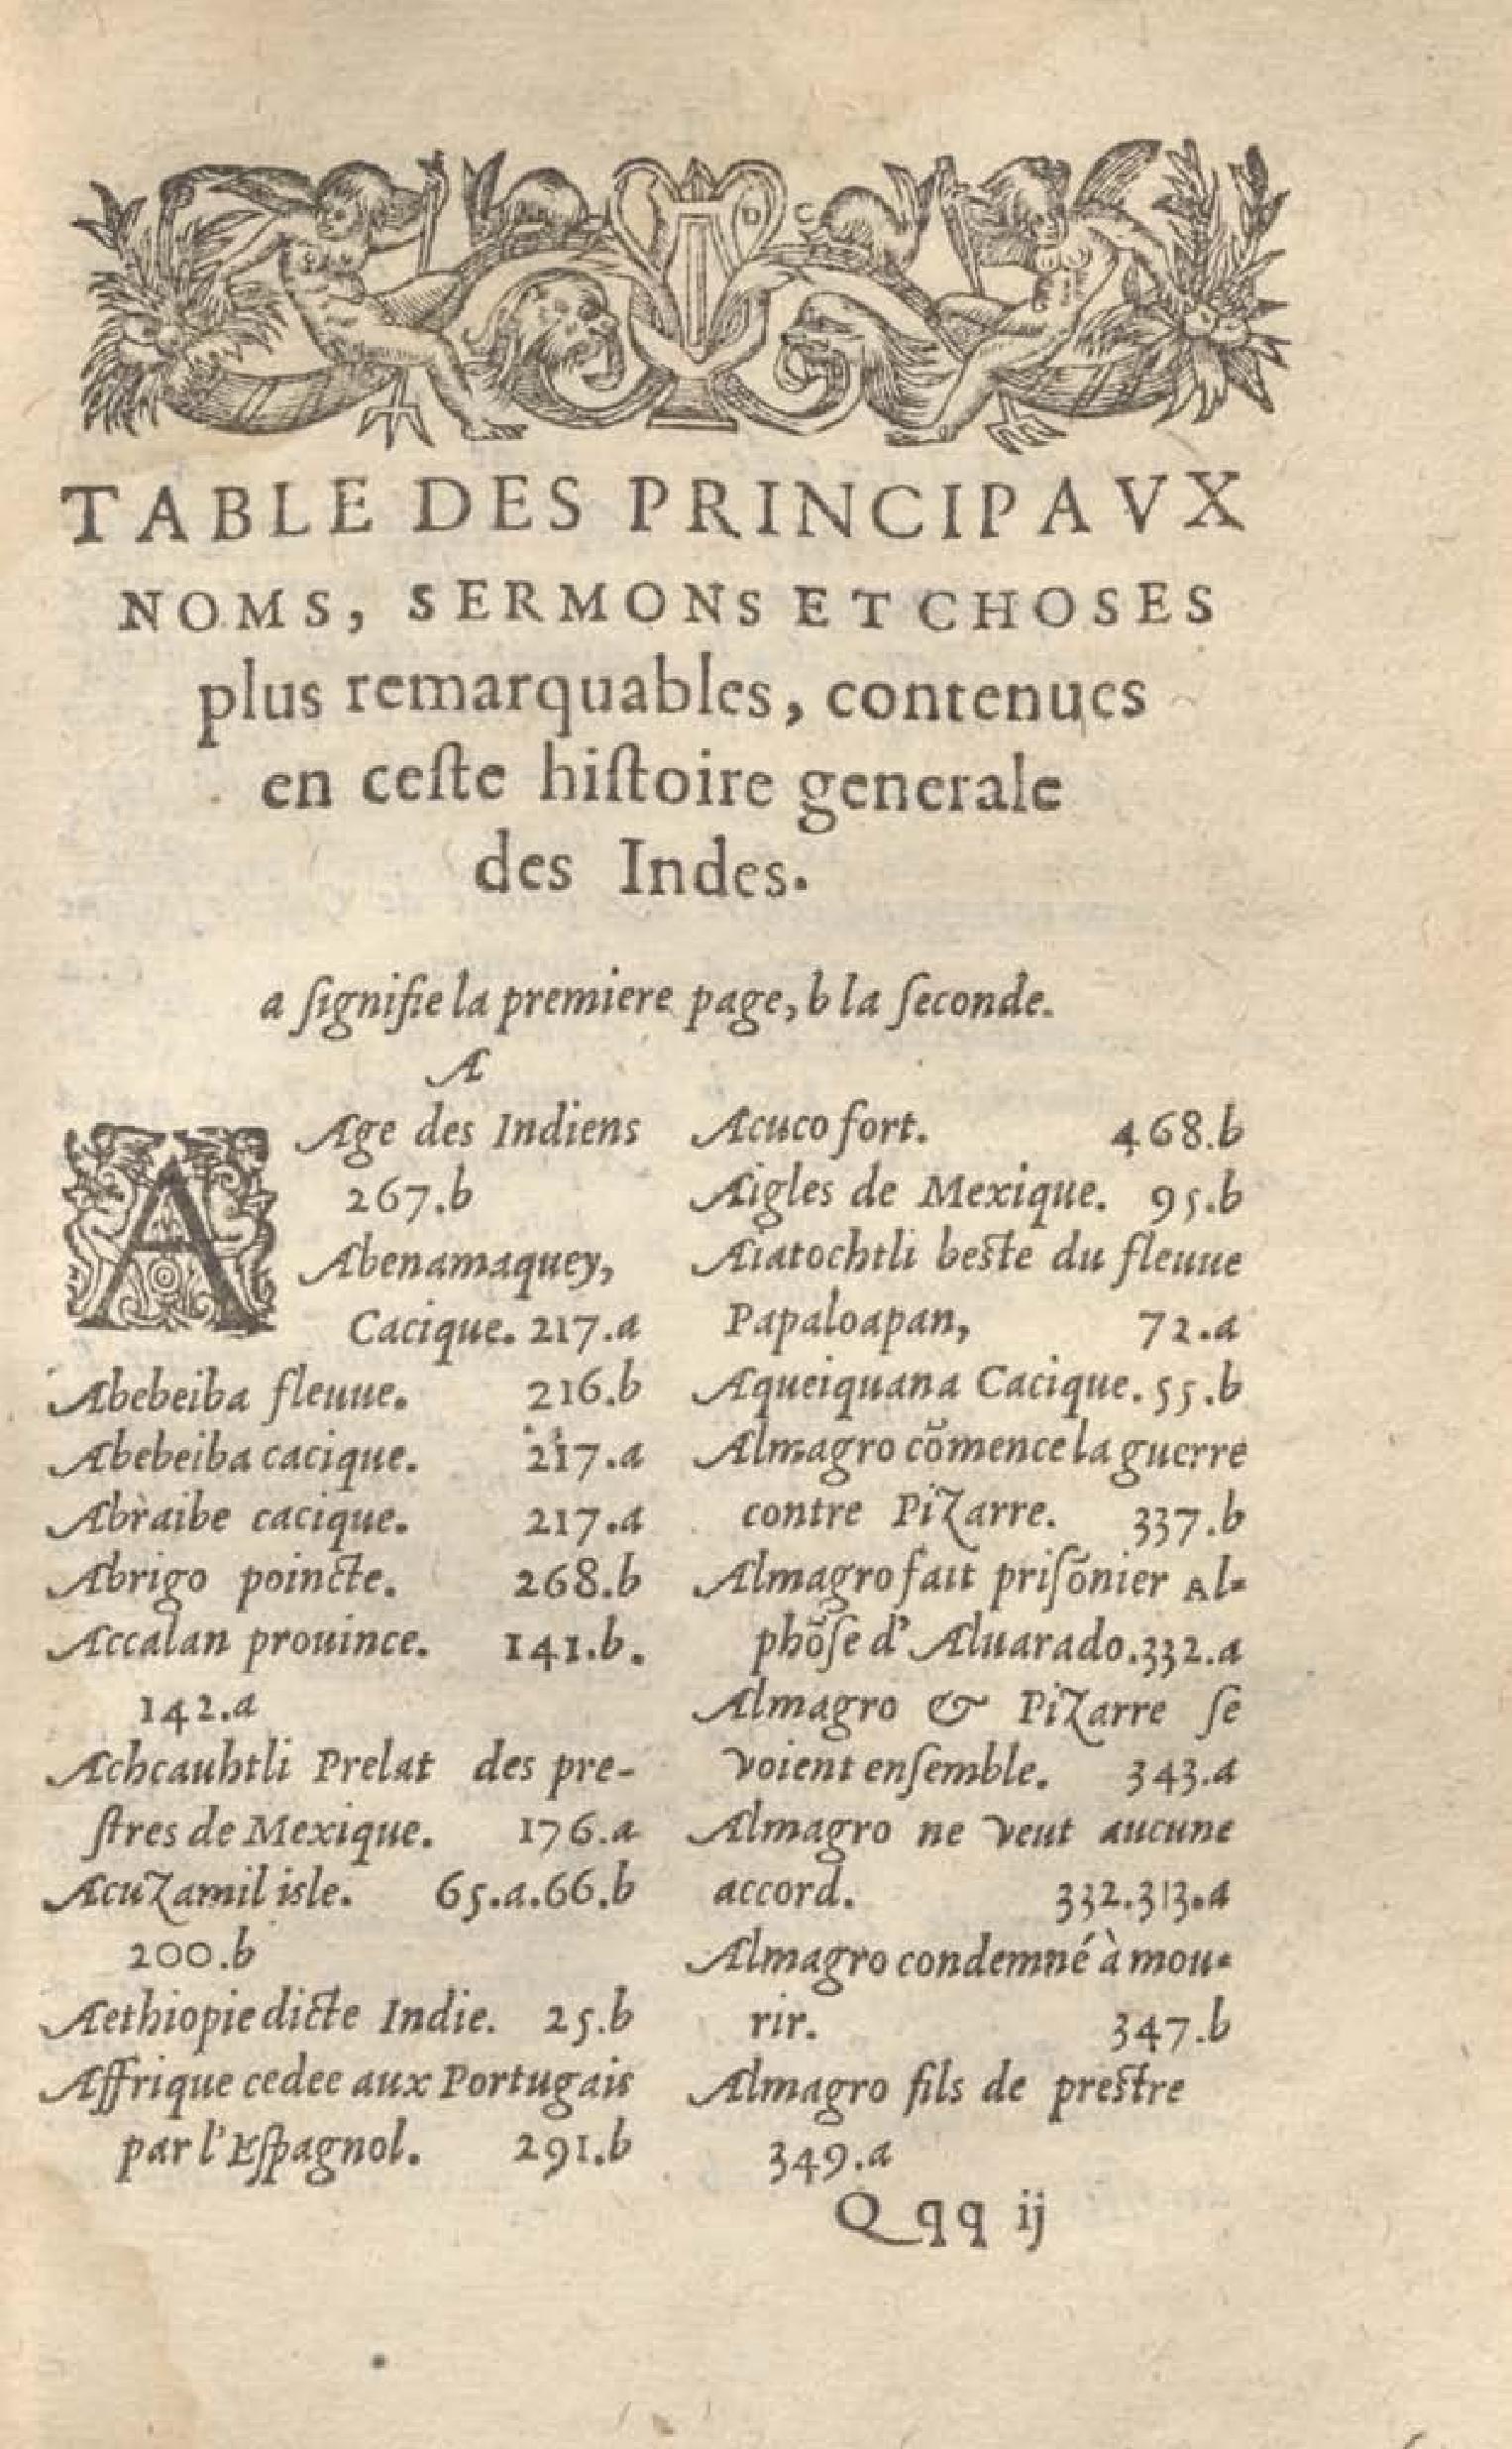 D C
TABLE DES PRINCIPAVX
NOMS, SERMONS ET CHOSES
plus remarquables, contenues
en ceſte hiſtoire generale
des Indes.
a ſignifie la premiere page, b la ſeconde.
A
Age des Indiens
267.b
Abenamaquey,
Cacique. 217.a
Abebeiba fleuue. 216.b
Abebeiba cacique. 217.a
Abraibe cacique. 217.a
Abrigo poincte. 268.b
Accalan prouince. 141.b.
142.a
Achcauhtli Prelat des pre-
ſtres de Mexique. 176.a
Acuzamil isle. 65.a.66.b
200.b
Aethiopie dicte Indie. 25.b
Affrique cedee aux Portugais
par l'Eſpagnol. 291.b
Acuco fort. 468.b
Aigles de Mexique. 95.b
Aiatochtli beſte du fleuue
Papaloapan, 72.a
Aqueiquana Cacique. 55.b
Almagro cõmence la guerre
contre Pizarre. 337.b
Almagro fait priſõnier Al-
phõſe d'Aluarado. 332.a
Almagro & Pizarre ſe
voient enſemble. 343.a
Almagro ne veut aucune
accord. 332.313.a
Almagro condemné à mou-
rir. 347.b
Almagro fils de preſtre
349.a
Qqq ij